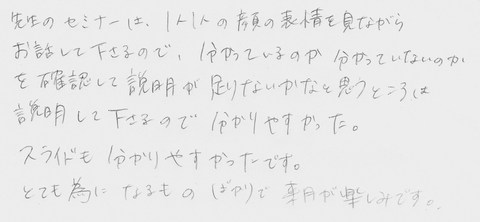 先生のセミナーは、1人1人の顔の表情を見ながら
お話して下さるので、分かっているのか分かっていないのか
を確認して説明が足りないかなと思うところは
説明して下さるので分かりやすかった。
スライドも分かりやすかったです。
とても為になるものばかりで来月が楽しみです。